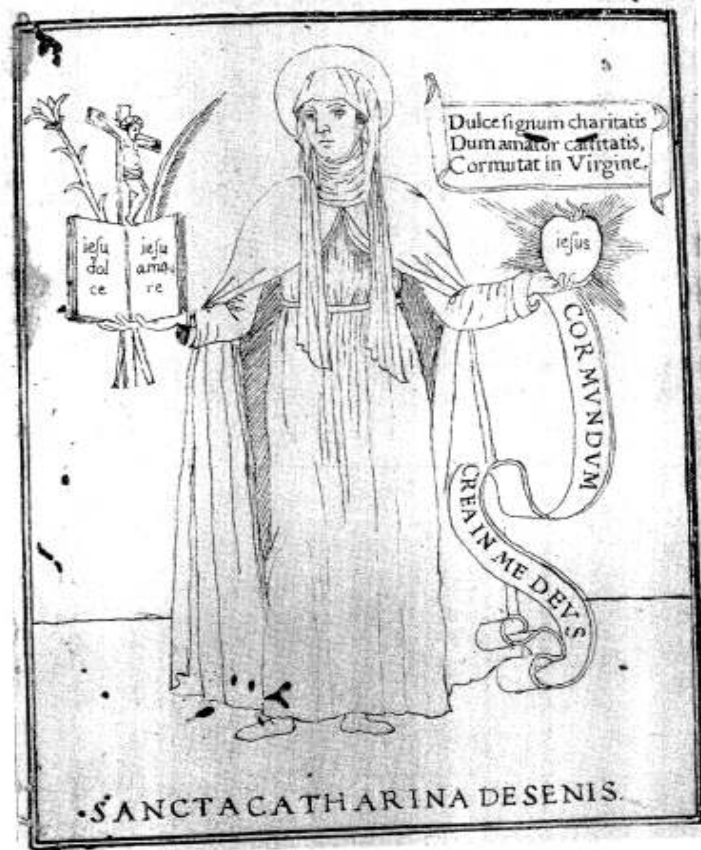 Dulce signum charitatis
Dum amator castitatis,
Cor mutat in Virgine.
iesu
dol
ce
iesu
amo
re
iesus
COR MVNDVM
CREA IN ME DEVS
·SANCTA CATHARINA DE SENIS.